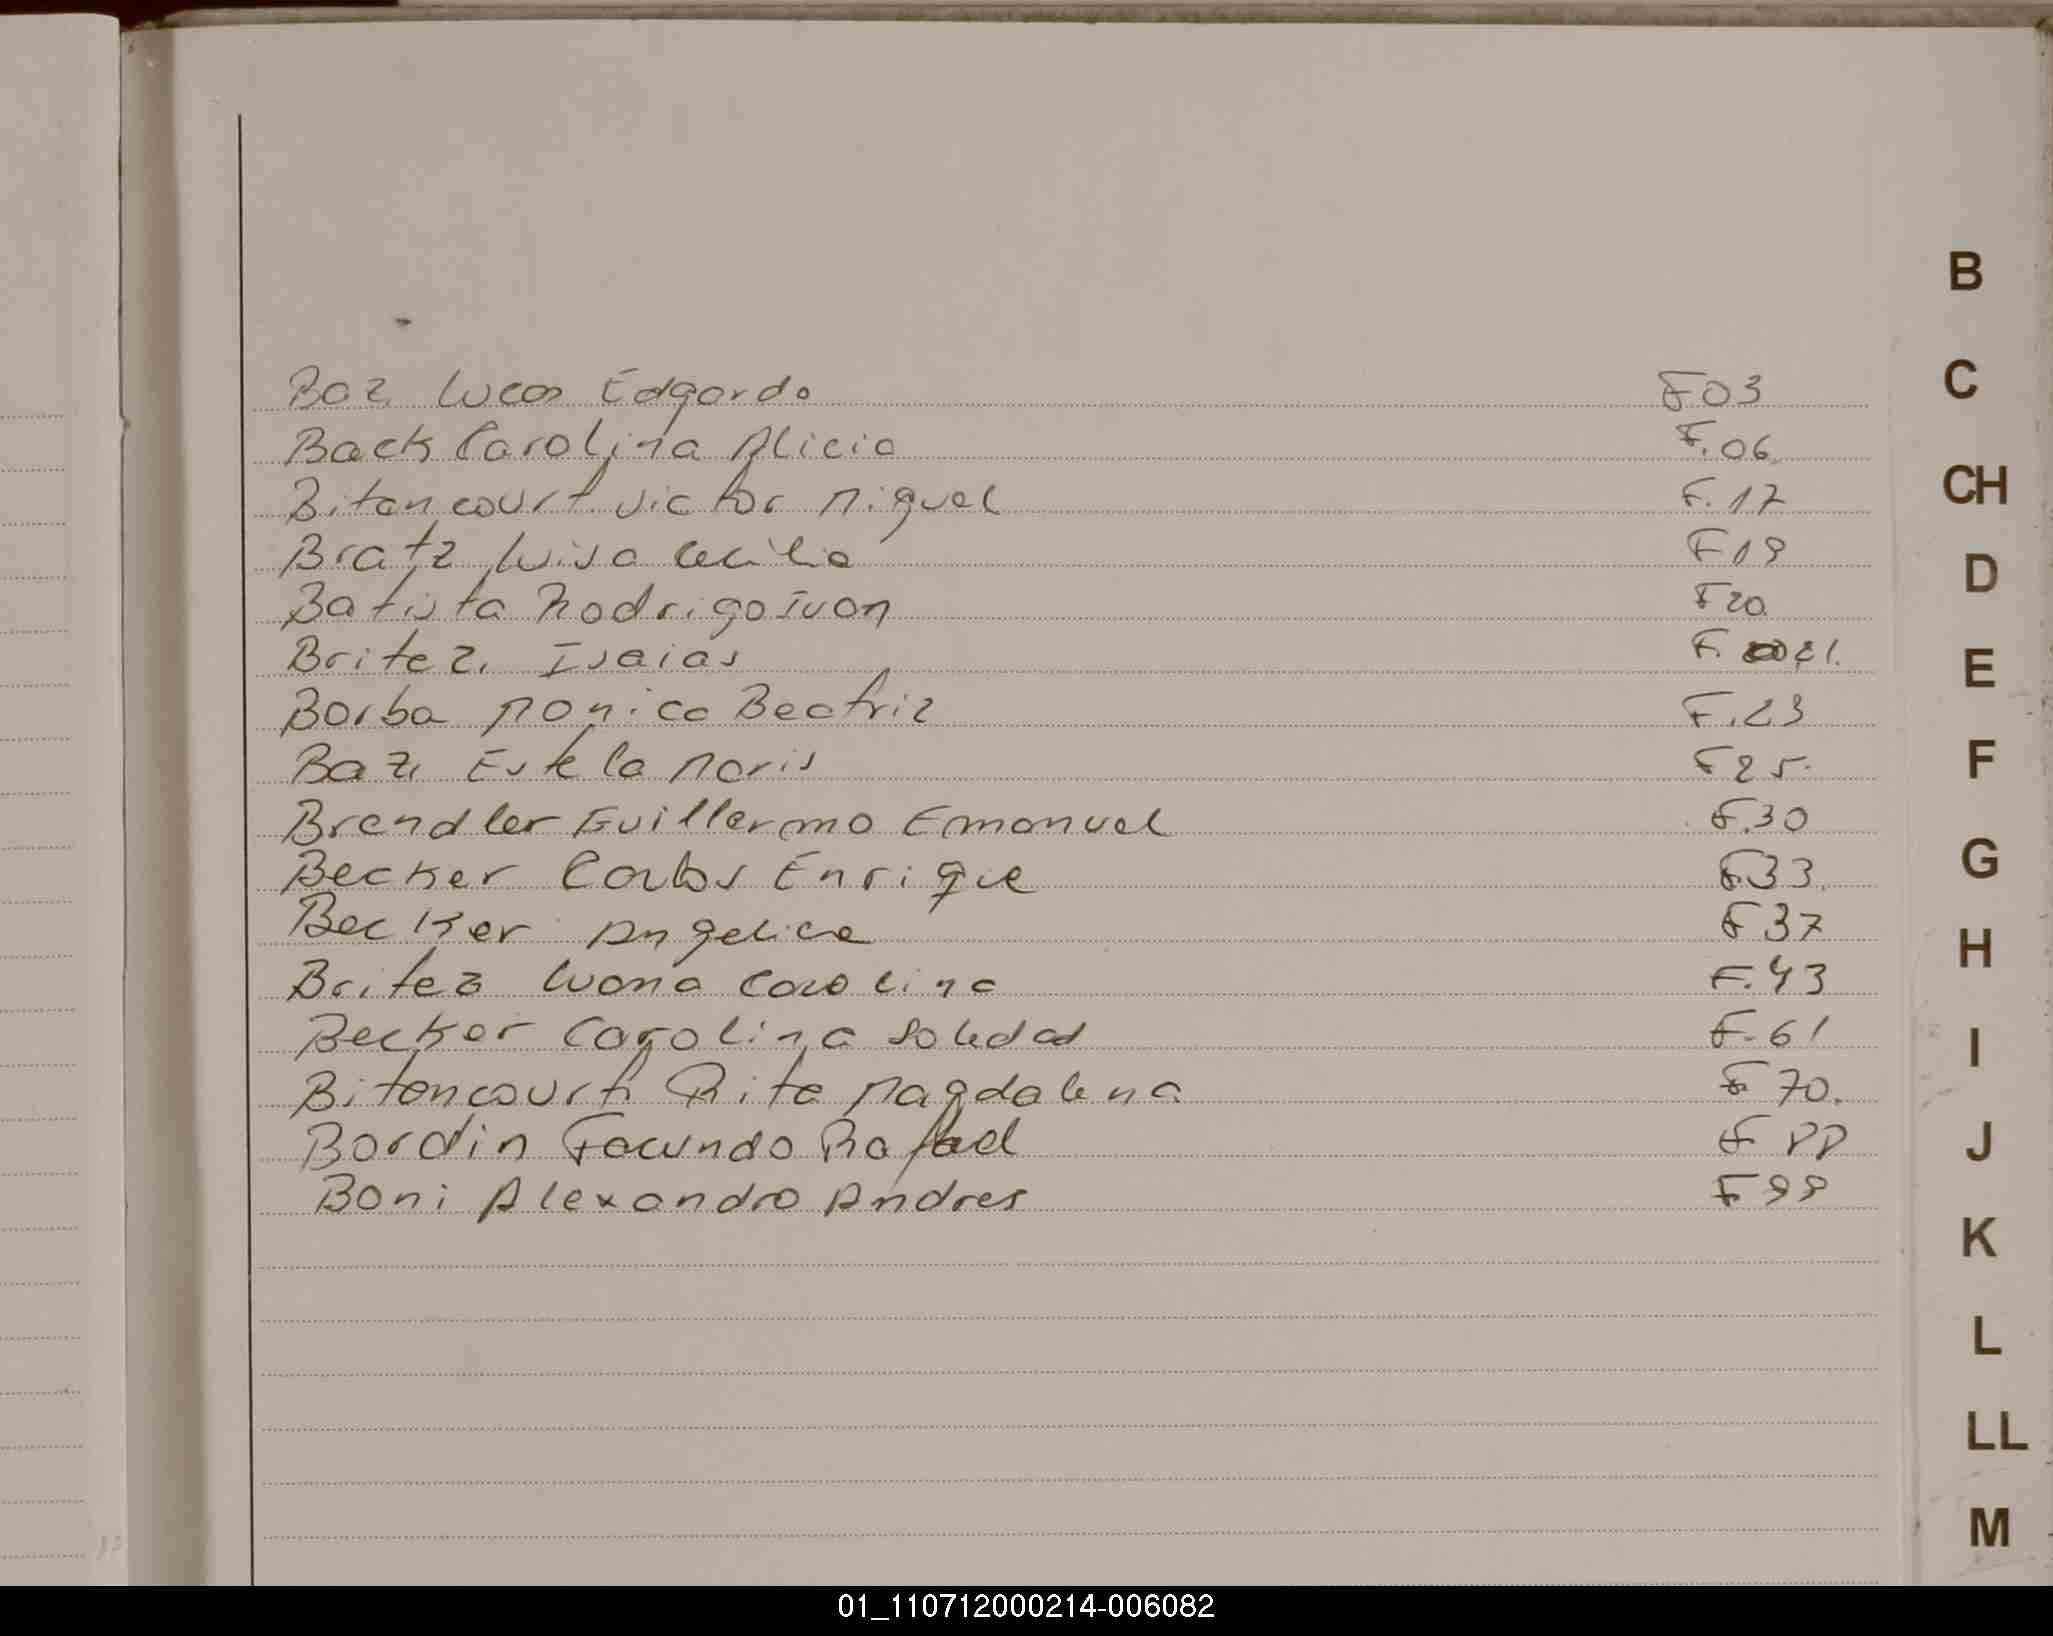 Baz Lucas Edgardo F03
Back Carolina Alicia F.06
Bitancourt Victor Miguel F.17
Bratz Luisa Cecilia F19
Batista Rodrigo Ivan F20
Britez Isaias F. 21.
Borba Monica Beatriz F.23
Baz Estela Maris F25.
Brendler Guillermo Emanuel F.30
Becker Carlos Enrique F33.
Becker Angelica F37
Britez Luana Carolina F.43
Becker Carolina Soledad F.61
Bitencourt Rita Magdalena F 70.
Bordin Facundo Rafael F 88
Boni Alexandro Andres F 99
B
C
CH
D
E
F
G
H
I
J
K
L
LL
M
01_110712000214-006082